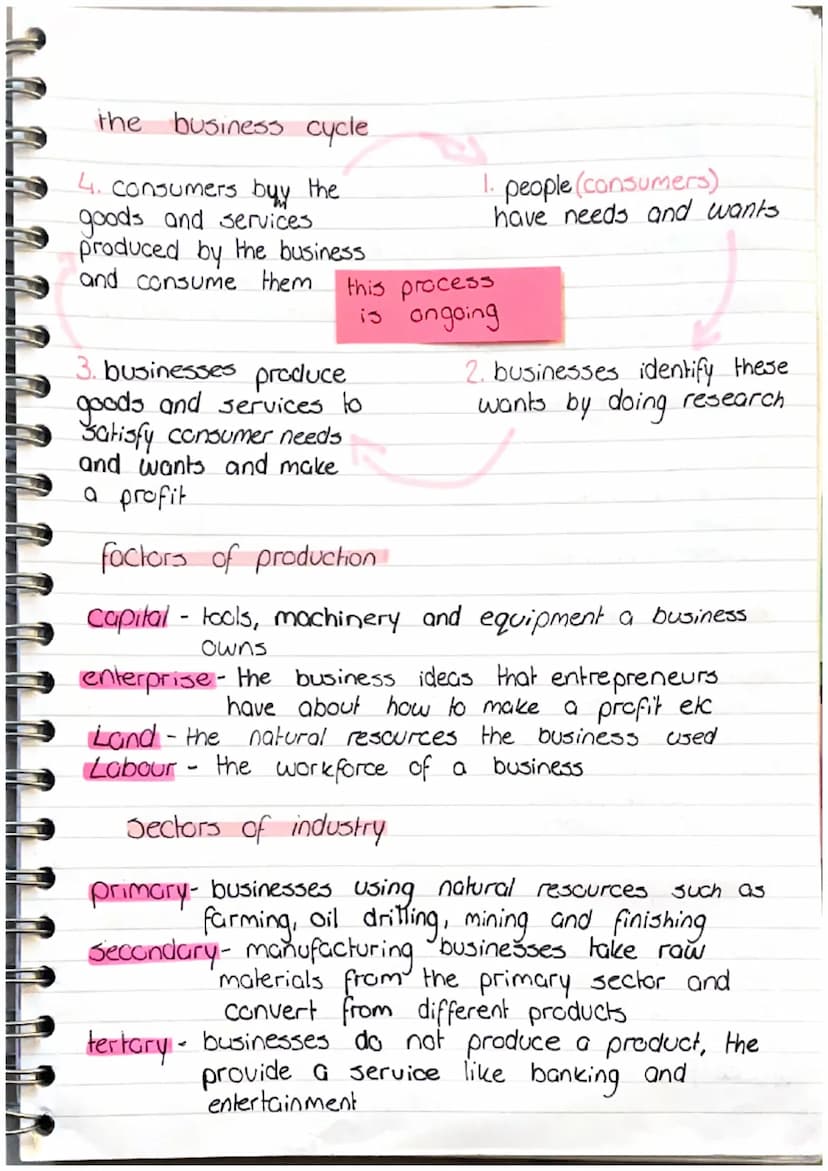 the business cycle
1. people (consumers)
have needs and wants
2. businesses identify these
wants by doing research
3. businesses produce
goods and services to
satisfy consumer needs
and wants and make
a profit
4. consumers buy the
goods and services
produced by the business
and consume them
this process
is ongoing
factors of production
capital - tools, machinery and equipment a business
owns
enterprise - the business ideas that entrepreneurs
have about how to make a profit etc
Land - the natural resources the business used
Labour - the workforce of a business
sectors of industry
primary - businesses using natural resources such as
farming, oil drilling, mining and finishing
secondary - manufacturing businesses take raw
materials from the primary sector and
convert from different products
tertary - businesses do not produce a product, the
provide a service like banking and
entertainment